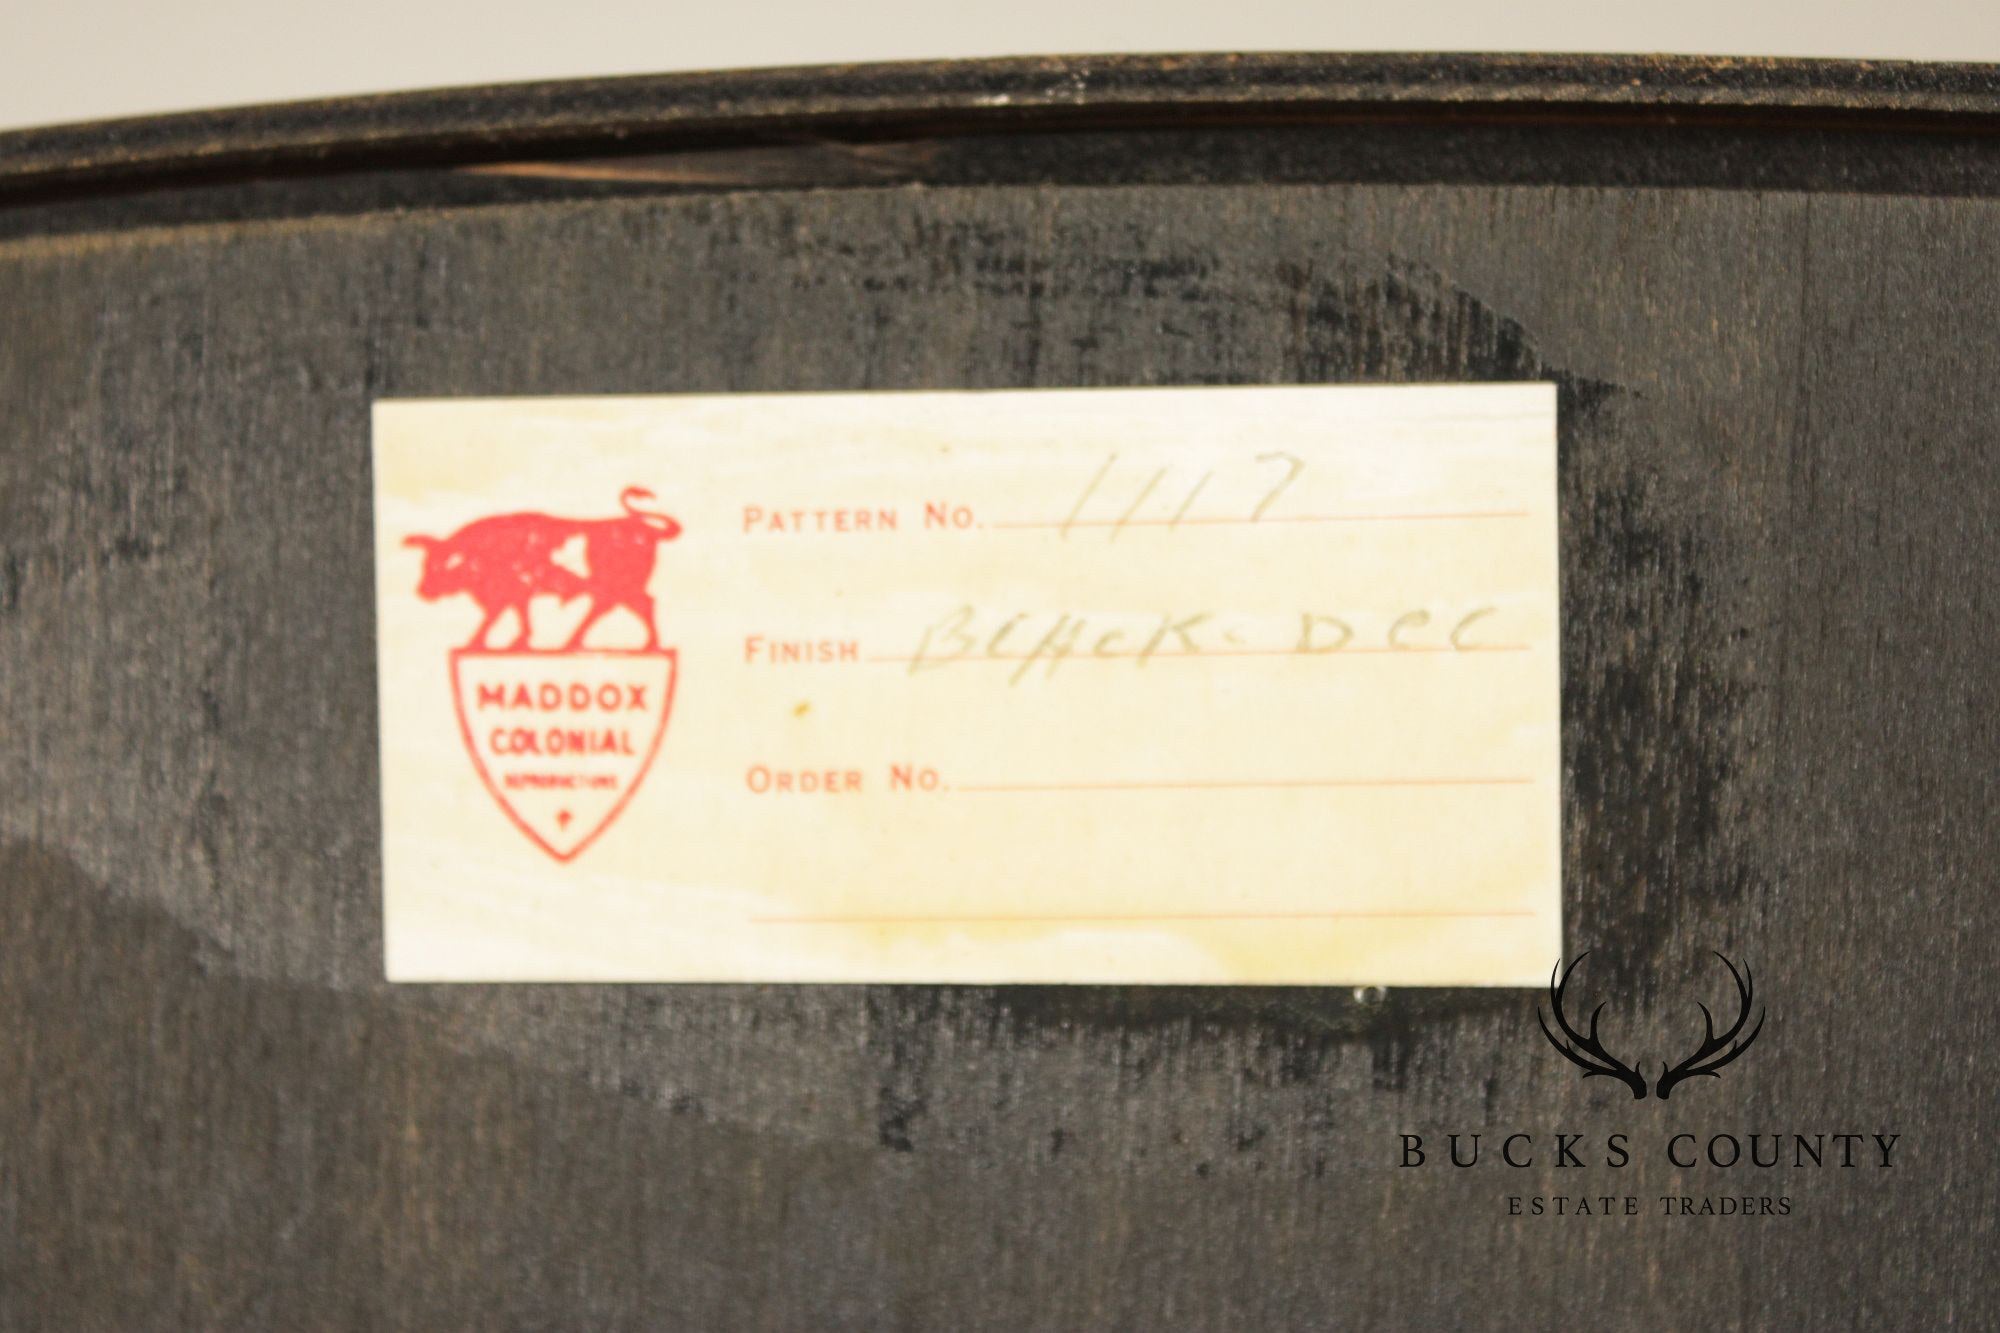 PATTERN NO. 1117
FINISH BLACK. DEC
ORDER NO.
MADDOX
COLONIAL
REPRODUCTIONS
BUCKS COUNTY
ESTATE TRADERS